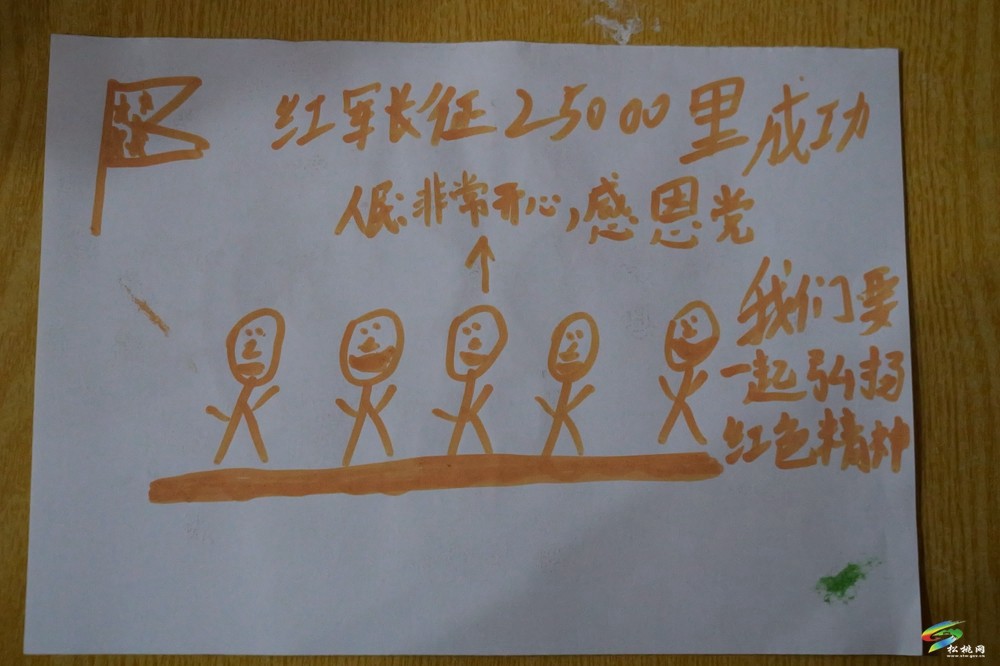 红军长征25000里成功
人民:非常开心,感恩党
我们要
一起弘扬
红色精神
松桃网
www.stw.gov.cn